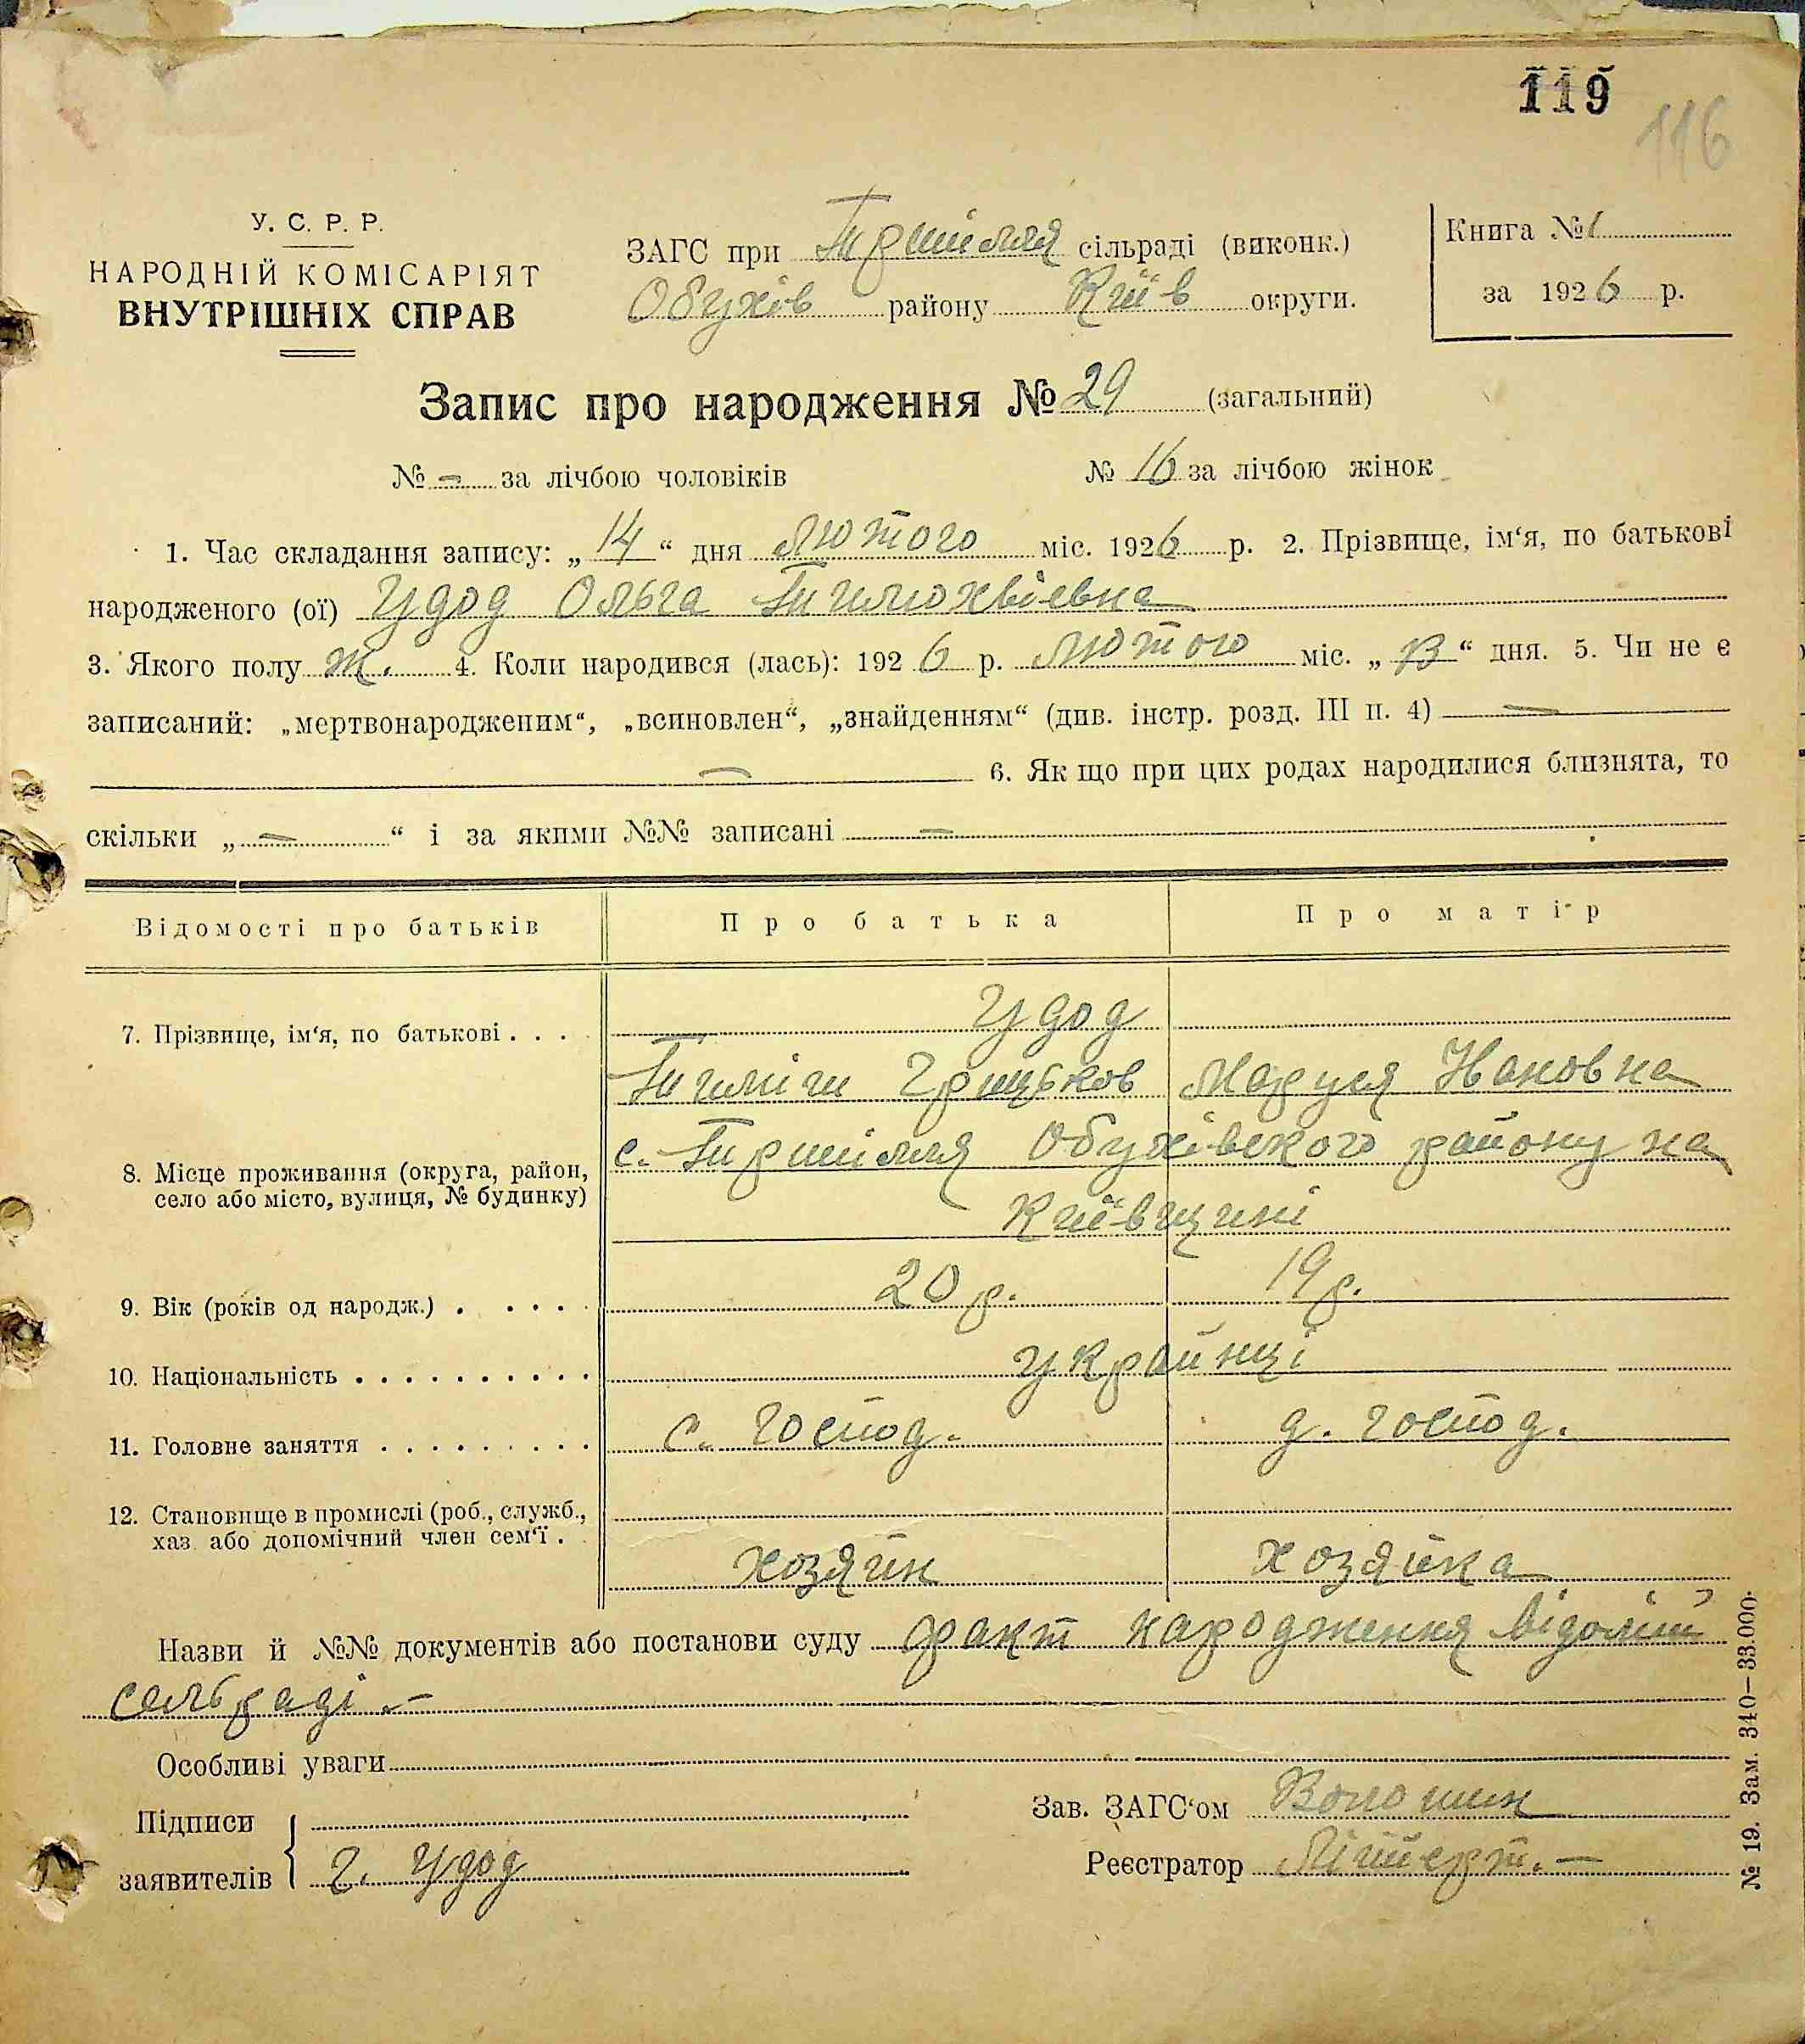 119
116
У. С. Р. Р.
НАРОДНІЙ КОМІСАРІЯТ
ВНУТРІШНІХ СПРАВ
ЗАГС при сільраді (виконк.)
Обухів району Київ округи.
Книга № 1
за 1926 р.
Запис про народження № 29 (загальний)
№ — за лічбою чоловіків № 16 за лічбою жінок
1. Час складання запису: „ 14 “ дня лютого міс. 1926 р. 2. Прізвище, ім‘я, по батькові
народженого (ої) Удод Ольга
3. Якого полу ж. 4. Коли народився (лась): 1926 р. лютого міс. „ 13 “ дня. 5. Чи не є
записаний: „мертвонародженим“, „всиновлен“, „знайденням“ (див. інстр. розд. III п. 4) —
— 6. Як що при цих родах народилися близнята, то
скільки „ — “ і за якими №№ записані —
Відомості про батьків Про батька Про матір
7. Прізвище, ім‘я, по батькові . . . Удод
Грицьков Маруся
8. Місце проживання (округа, район, село або місто, вулиця, № будинку) с. Обухівського району на
Київщині
9. Вік (років од народж.) . . . . . 20 р. 19 р.
10. Національність . . . . . . . . . . українці
11. Головне заняття . . . . . . . . . с. господ. д. господ.
12. Становище в промислі (роб., служб.,
хаз. або допомічний член сем‘ї . хозяїн хозяйка
Назви й №№ документів або постанови суду факт народження відомий
сельраді. —
Особливі уваги
Підписи
заявителів Г. Удод
Зав. ЗАГС‘ом Волошин
Реєстратор
№ 19. Зам. 340—33.000.